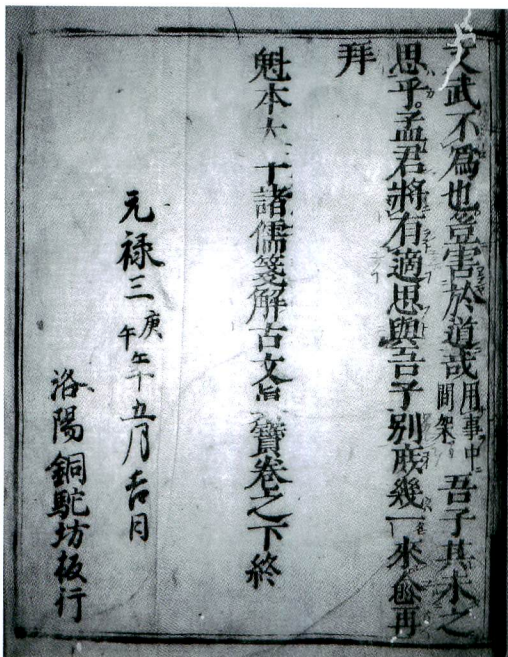 文武不爲也豈害於道哉用事中間架吾子其未之
思乎。孟君將有適思與吾子別庶幾一來愈再
拜
魁本大字諸儒箋解古文眞寶卷之下終
元禄三庚午年五月吉日
洛陽銅駝坊板行